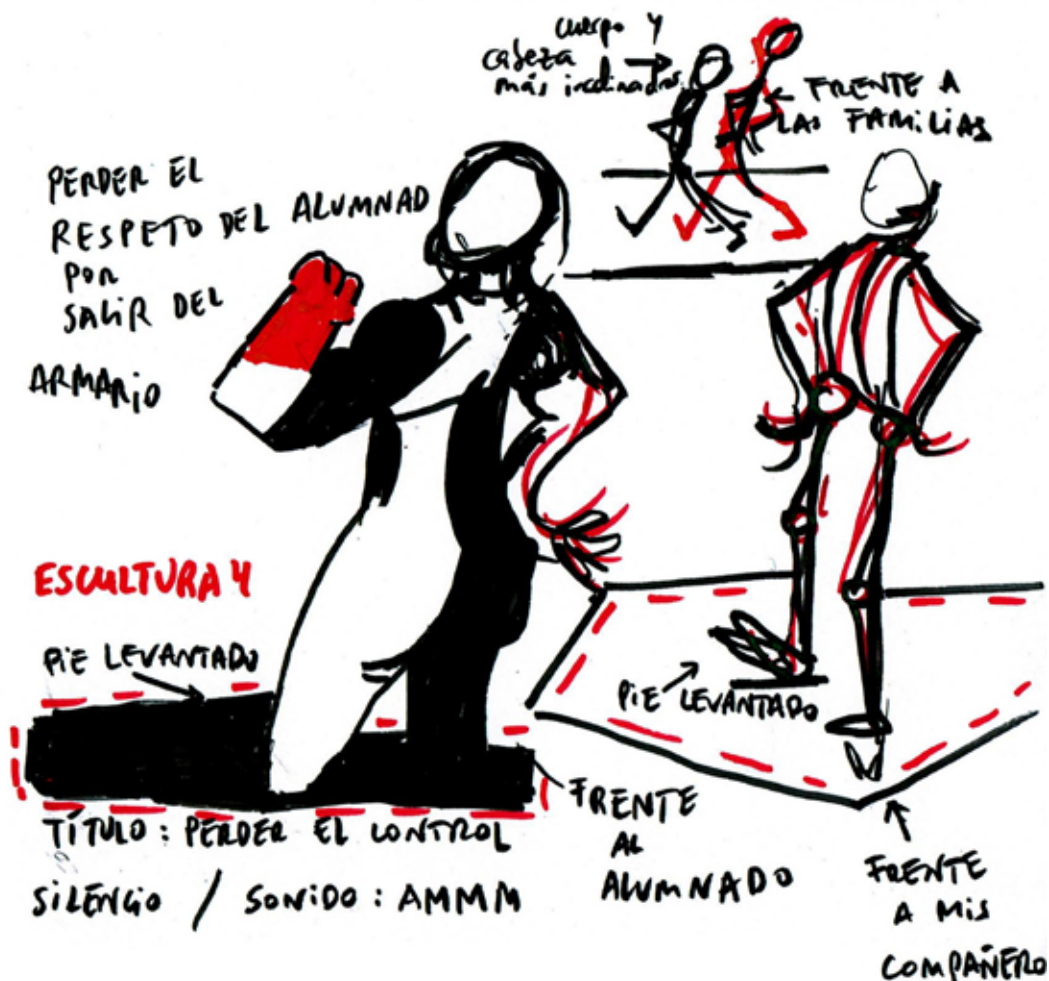 cuerpo y
cabeza
más inclinados
FRENTE A
LAS FAMILIAS
PERDER EL
RESPETO DEL ALUMNAD
POR
SALIR DEL
ARMARIO
ESCULTURA 4
PIE LEVANTADO
PIE LEVANTADO
TÍTULO: PERDER EL CONTROL
SILENCIO / SONIDO: AMMM
FRENTE
AL
ALUMNADO
FRENTE
A MIS
COMPAÑERO